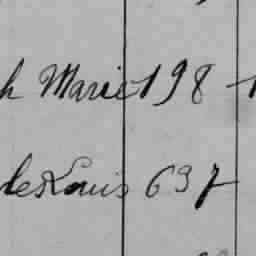 h Marie 198
le Louis 637